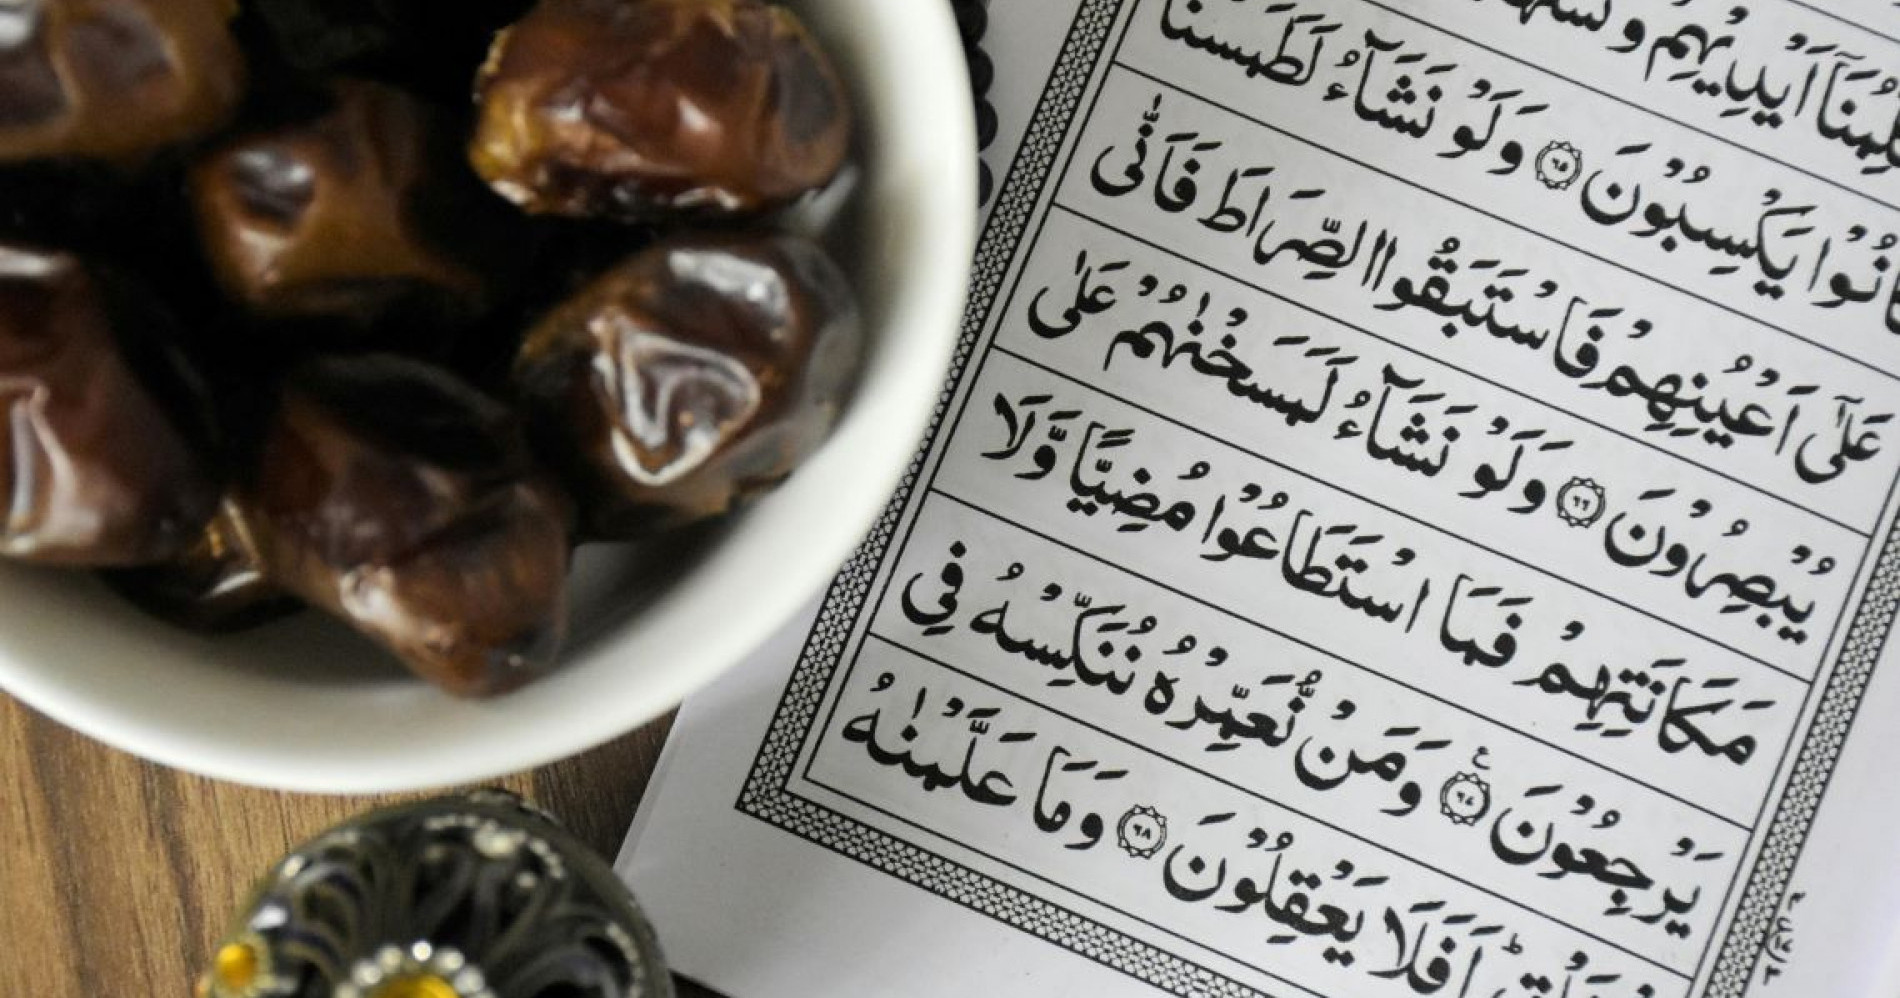 اَيْدِيْهِمْ
كَانُوْا يَكْسِبُوْنَ ۝٦٥ وَلَوْ نَشَآءُ لَطَمَسْنَا
عَلٰٓى اَعْيُنِهِمْ فَاسْتَبَقُوا الصِّرَاطَ فَاَنّٰى
يُبْصِرُوْنَ ۝٦٦ وَلَوْ نَشَآءُ لَمَسَخْنٰهُمْ عَلٰى
مَكَانَتِهِمْ فَمَا اسْتَطَاعُوْا مُضِيًّا وَّلَا
يَرْجِعُوْنَ ۝٦٧ۧ وَمَنْ نُّعَمِّرْهُ نُنَكِّسْهُ فِى
اَفَلَا يَعْقِلُوْنَ ۝٦٨ وَمَا عَلَّمْنٰهُ